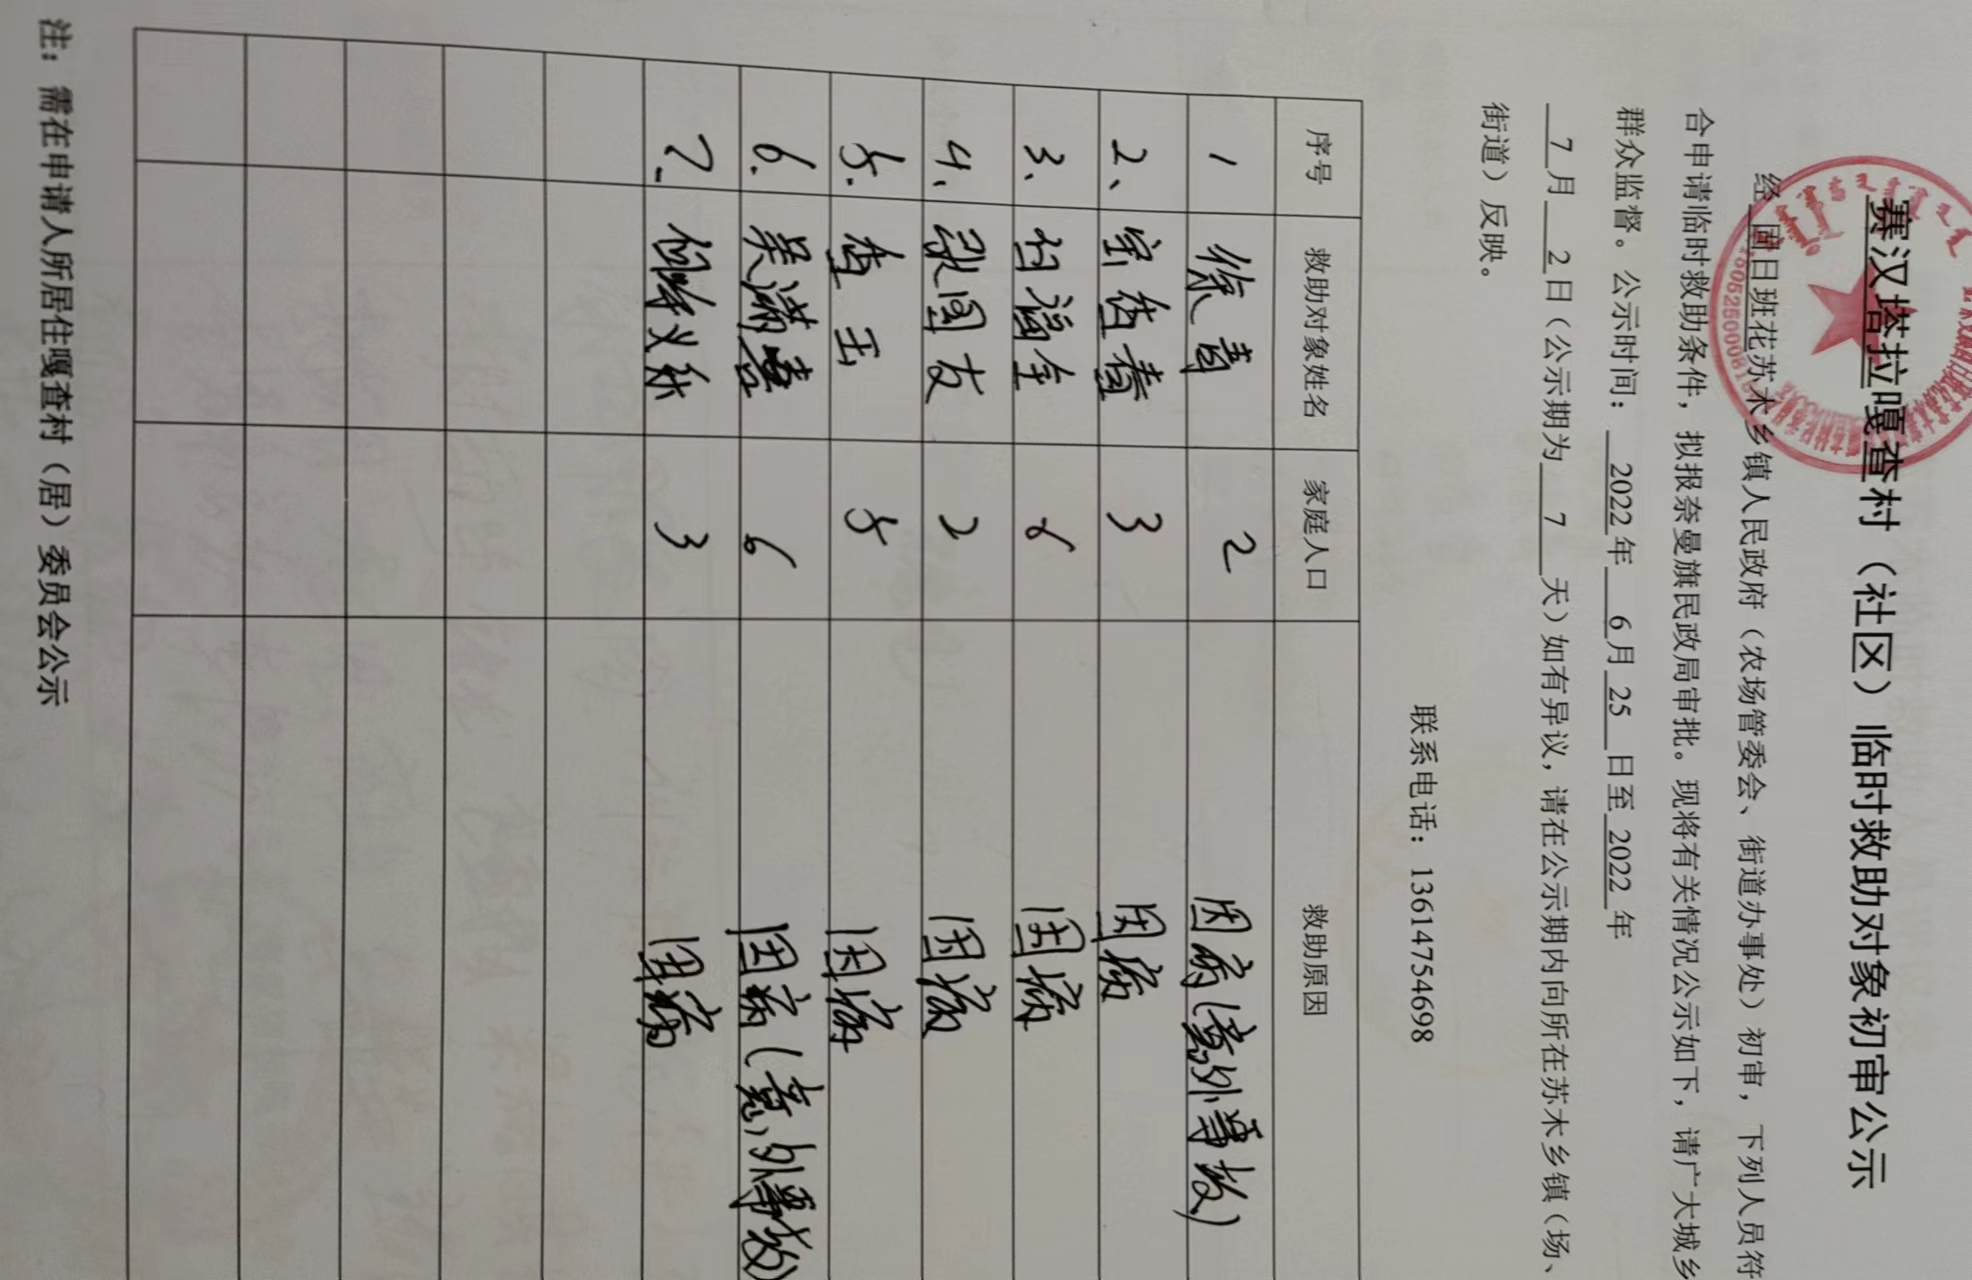 赛汉塔拉嘎查村（社区）临时救助对象初审公示
经 固日班花苏木乡镇人民政府（农场管委会、街道办事处）初审，下列人员符
合申请临时救助条件，拟报奈曼旗民政局审批。现将有关情况公示如下，请广大城乡
群众监督。公示时间： 2022 年 6 月 25 日至 2022 年
7 月 2 日（公示期为 7 天）如有异议，请在公示期内向所在苏木乡镇（场、
街道）反映。
联系电话：13614754698
序号 救助对象姓名 家庭人口 救助原因
1 徐青 2 因病(意外事故)
2、 宝 3 因病
3、 福全 因病
4、 梁国友 2 因病
5. 玉 5 因病
6. 吴满喜 6 因病(意外事故)
7. 3 因病
注：需在申请人所居住嘎查村（居）委员会公示